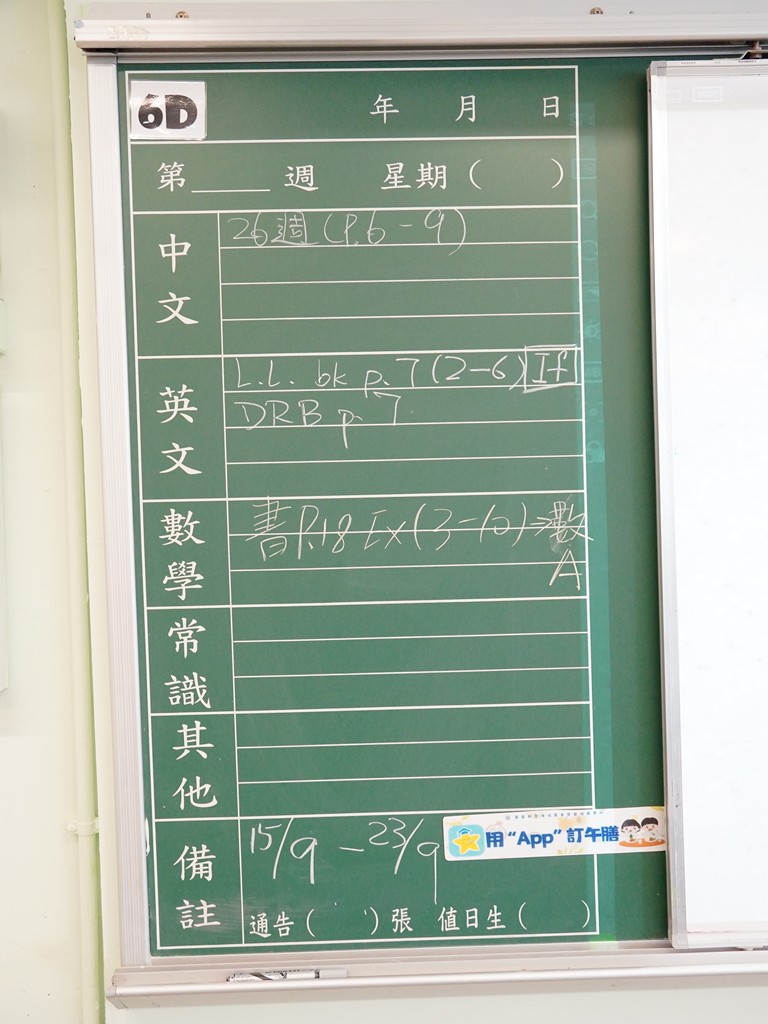 6D
年 月 日
第____週 星期( )
中文
26週(P.6-9)
英文
L.L. bk p.7(2-6) If
DRB p.7
數學
書P.18 Ex(3-10)⇒數
A
常識
其他
備註
15/9 - 23/9
用“App”訂午膳
通告( )張 值日生( )